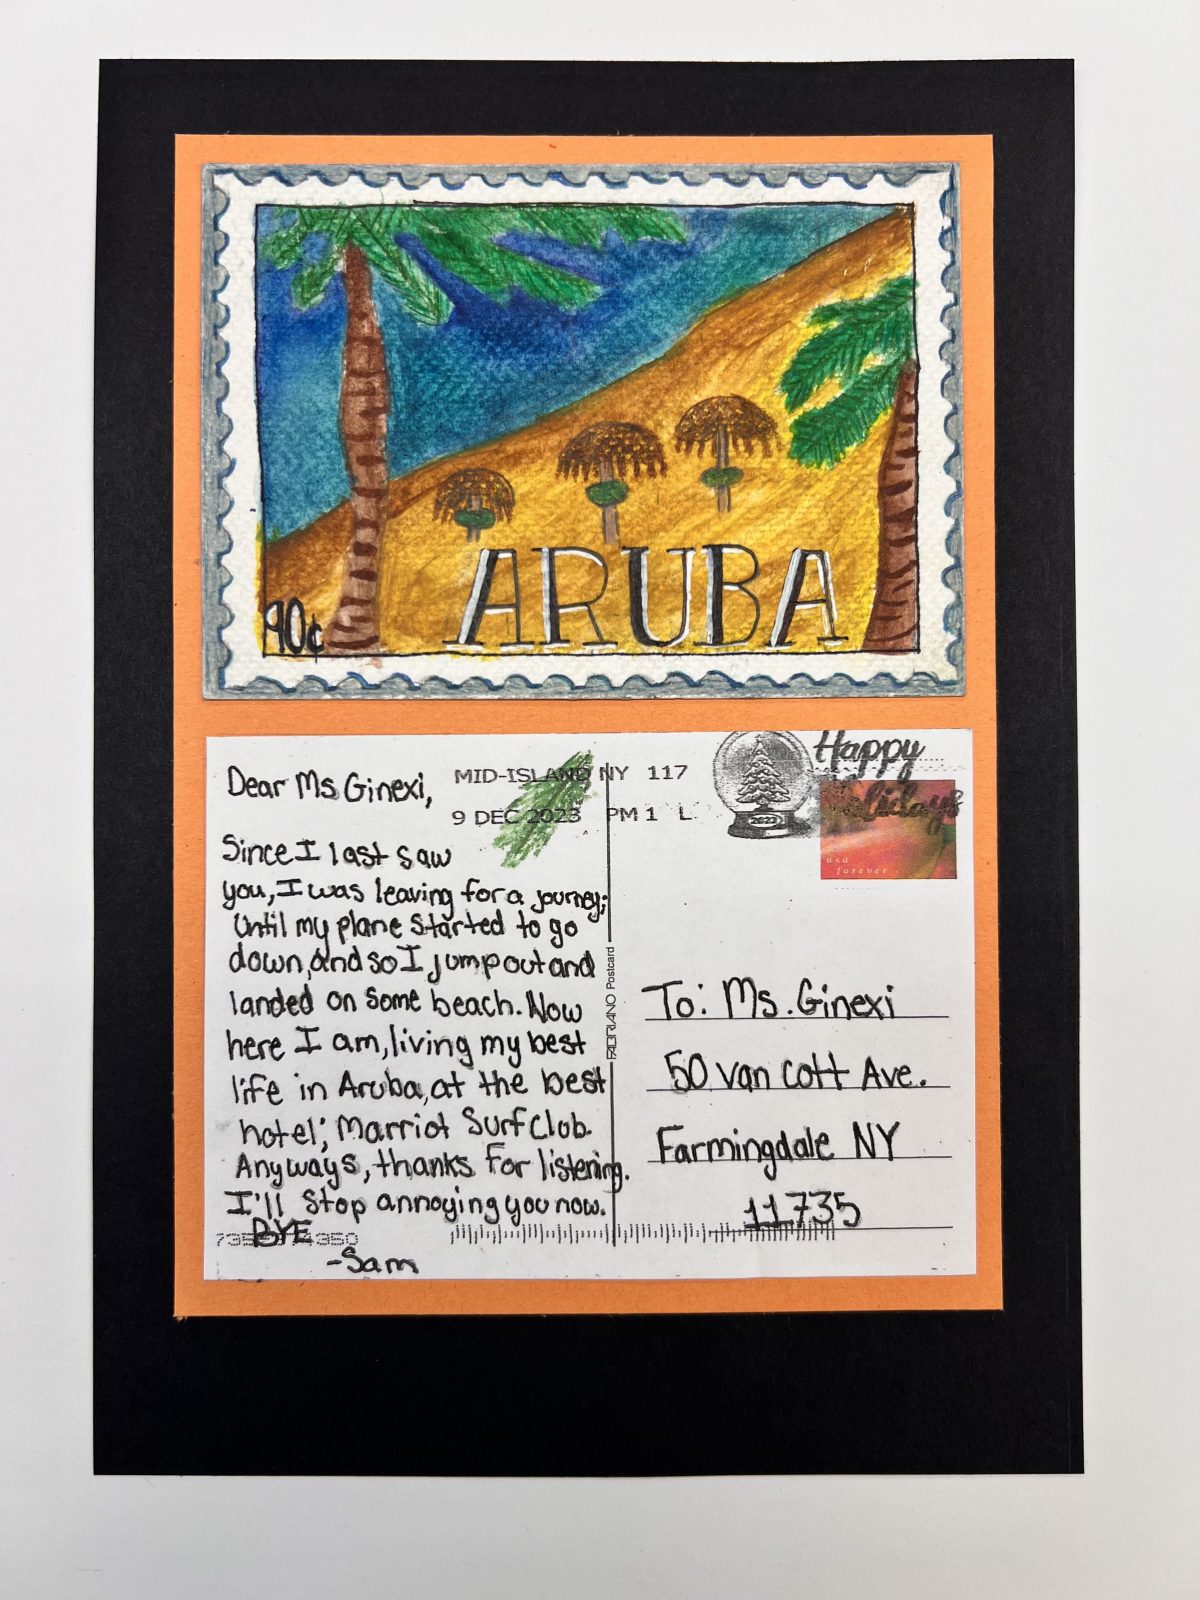 90¢
ARUBA
Dear Ms Ginexi,
Since I last saw
you, I was leaving for a journey;
Until my plane started to go
down, and so I jump out and
landed on some beach. Now
here I am, living my best
life in Aruba, at the best
hotel; Marriot Surf Club.
Anyways, thanks for listening.
I'll stop annoying you now.
BYE
-Sam
MID-ISLAND NY 117
9 DEC 2023 PM 1 L
2023
Happy
Holidays
USA
forever
FABRIANO Postcard
To: Ms. Ginexi
50 van cott Ave.
Farmingdale NY
11735